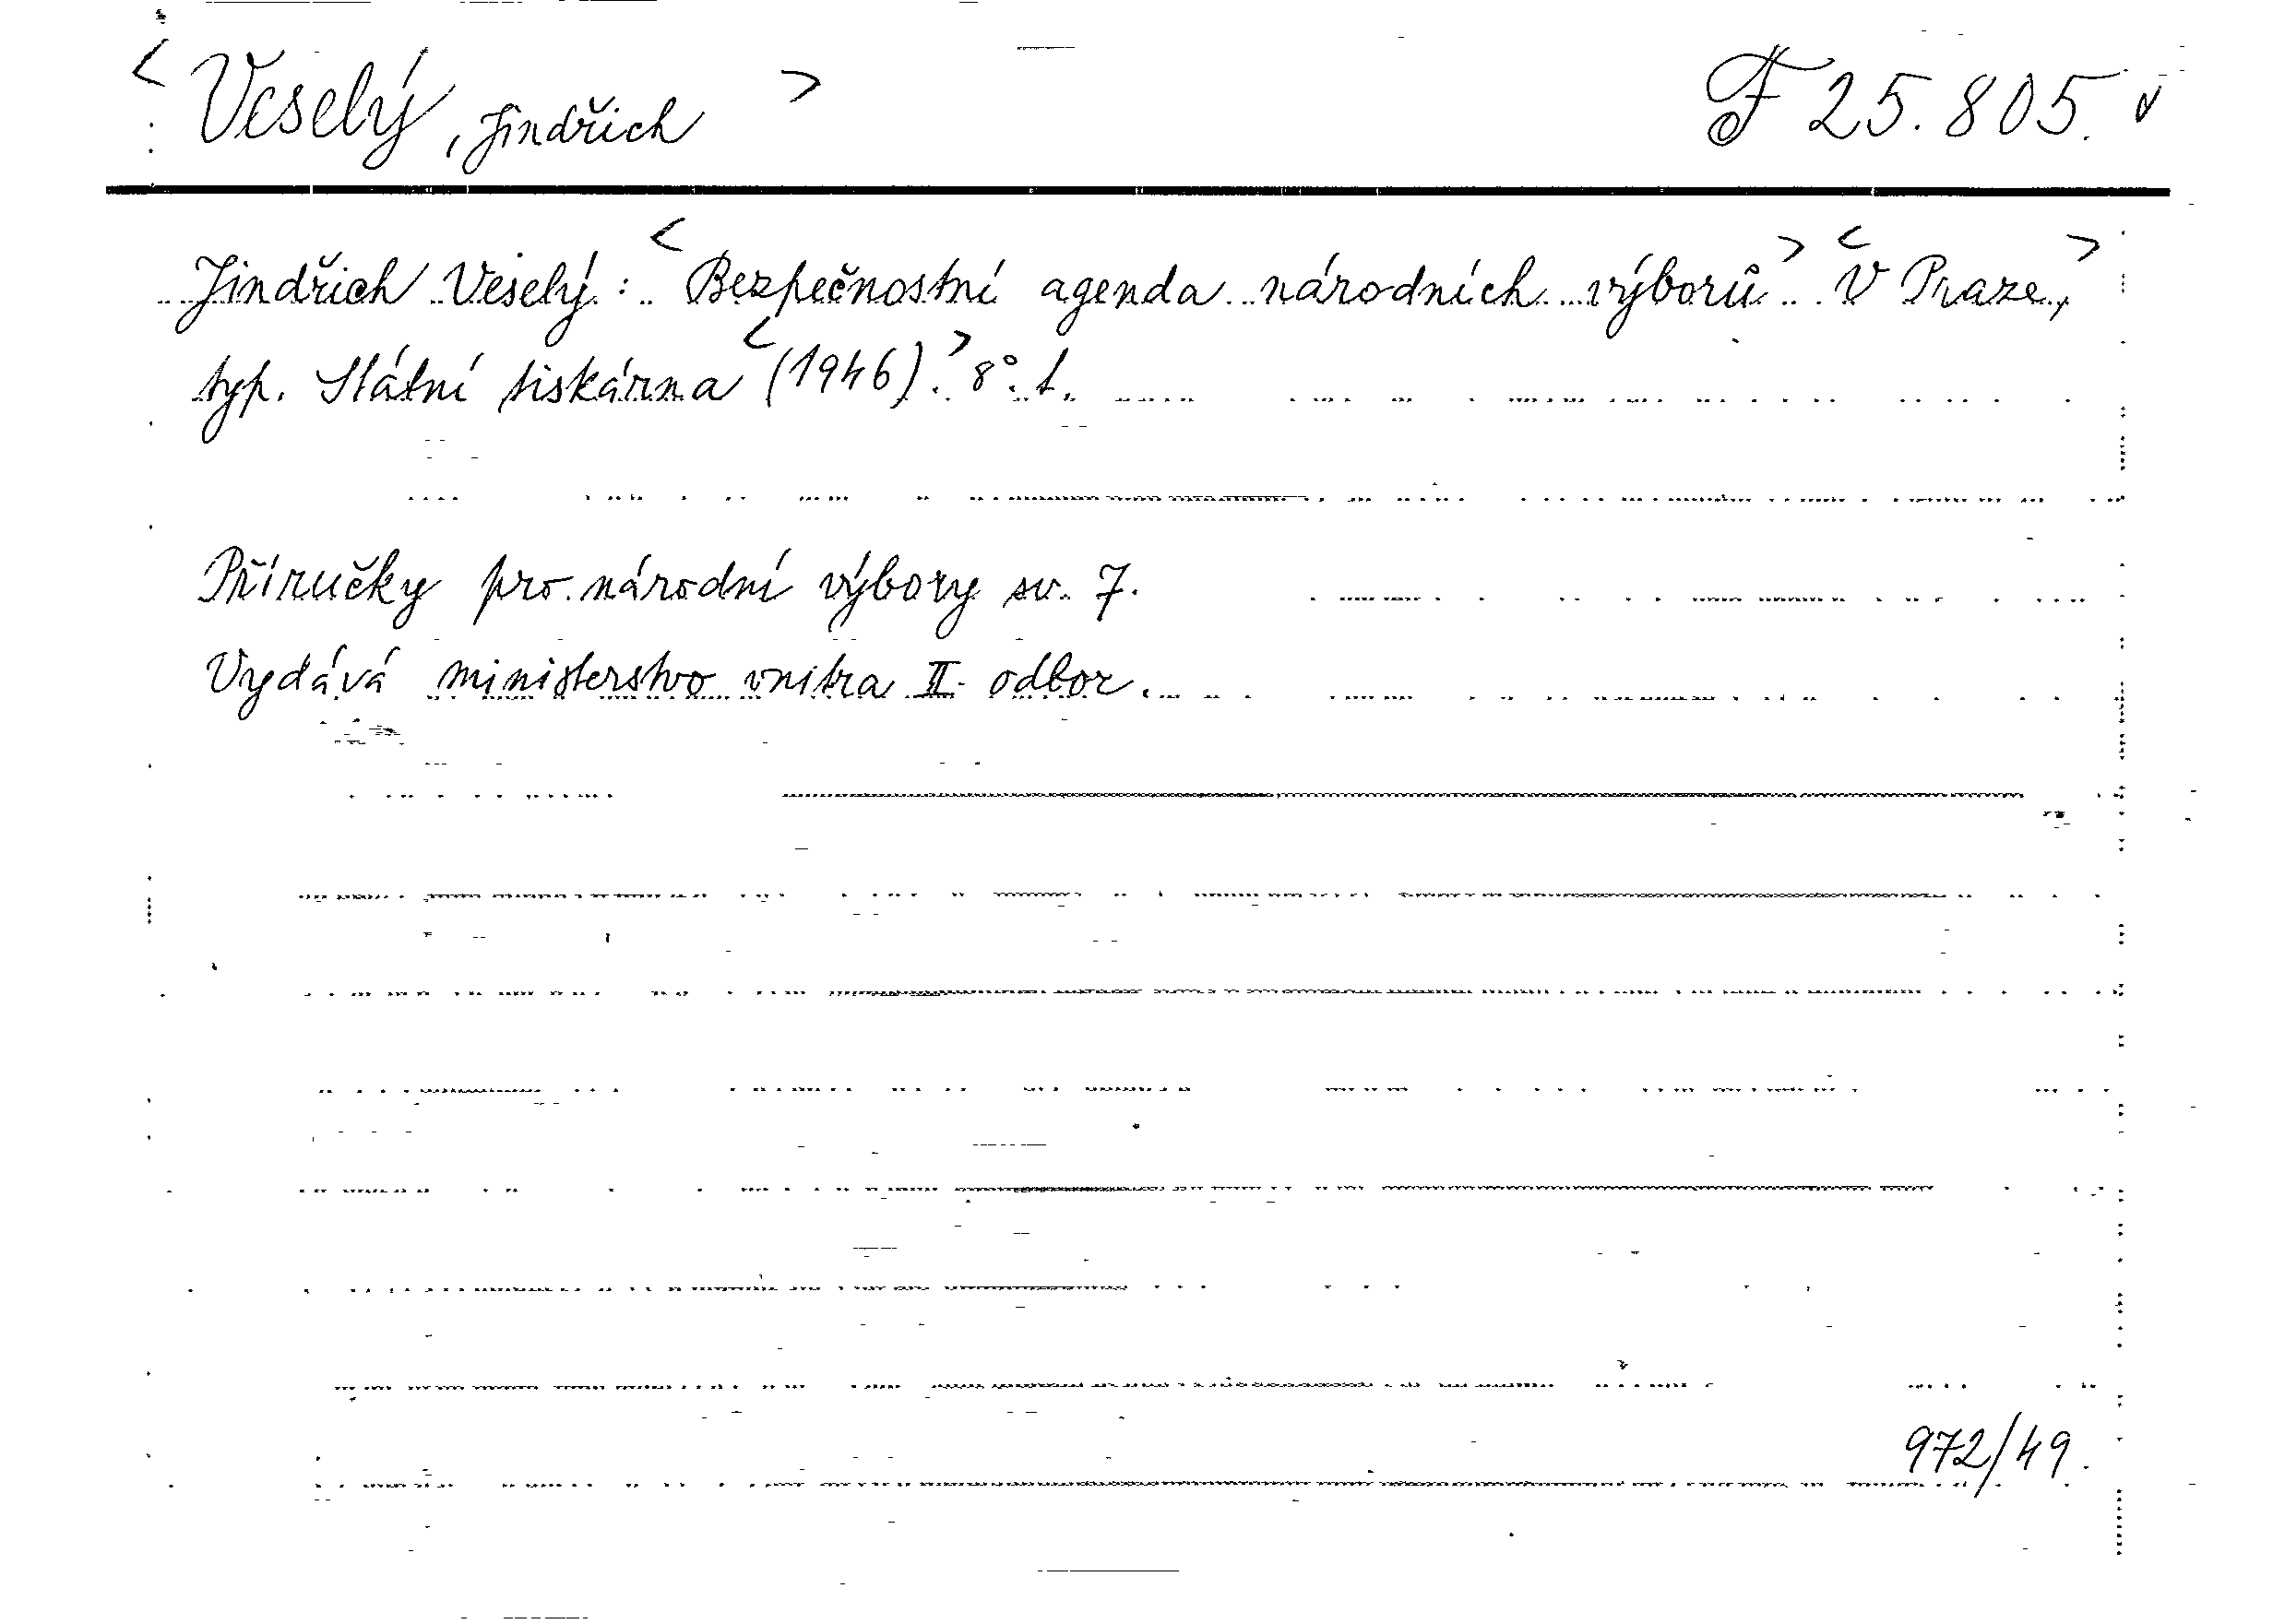 < Veselý, Jindřich > F 25.805.
Jindřich Veselý: <Bezpečnostní agenda národních výborů> <V Praze,>
typ. Státní tiskárna <(1946).> 8°. 1.
Příručky pro národní výbory sv. 7.
Vydává ministerstvo vnitra II. odbor.
972/49.